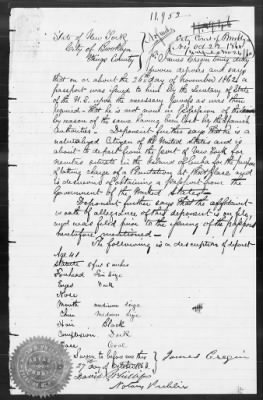 11,953
State of New York
City of Brooklyn
Kings County
James Cregin being duly
sworn deposes and says
that on or about the 26 day of November 1862 a
passport was issued to him by the Secretary of State
of the U.S. upon the necessary proofs as was then
required that he is not now in possession of the
by reason of the same having been lost by the Spanish
Authorities — Deponent further says that he is a
naturalized Citizen of the United States and is
about to depart from the Port of New York for
situate in the Island of Cuba for the purpose
of taking charge of a Plantation at that place and
is desirous of obtaining a passport from the
Government of the United States
Deponent further says that the affidavit
& oath of allegiance of this deponent is on file
and was filed prior to the issuing of the passport
heretofore mentioned —
The following is a description of deponent
Age 41
Stature 5 feet 6 inches
Forehead
Eyes Dark
Nose
Mouth medium size
Chin medium size
Hair Black
Complexion Dark
Face Oval
Sworn to before me this
27 day of October
James Cregin
David Phillips
Notary Public